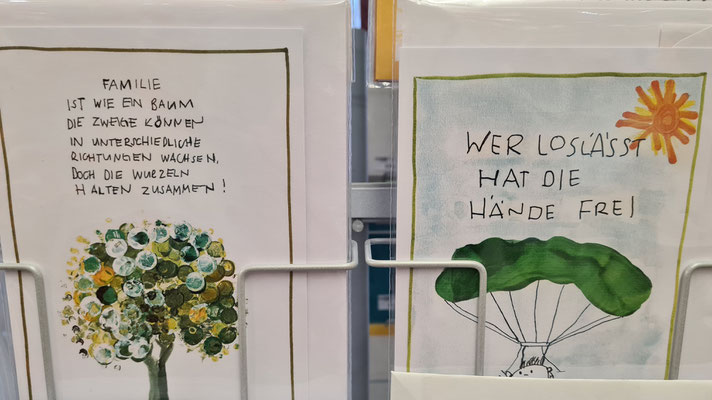 FAMILIE
IST WIE EIN BAUM
DIE ZWEIGE KÖNNEN
IN UNTERSCHIEDLICHE
RICHTUNGEN WACHSEN,
DOCH DIE WURZELN
HALTEN ZUSAMMEN!
WER LOSLÄSST
HAT DIE
HÄNDE FREI